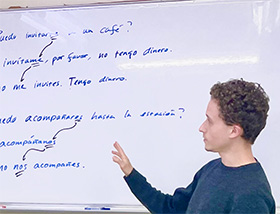 uedo invitar... un café?
invítame, por favor, no tengo dinero.
o me invites. Tengo dinero.
edo acompañaros hasta la estación?
acompáñanos
no nos acompañes.